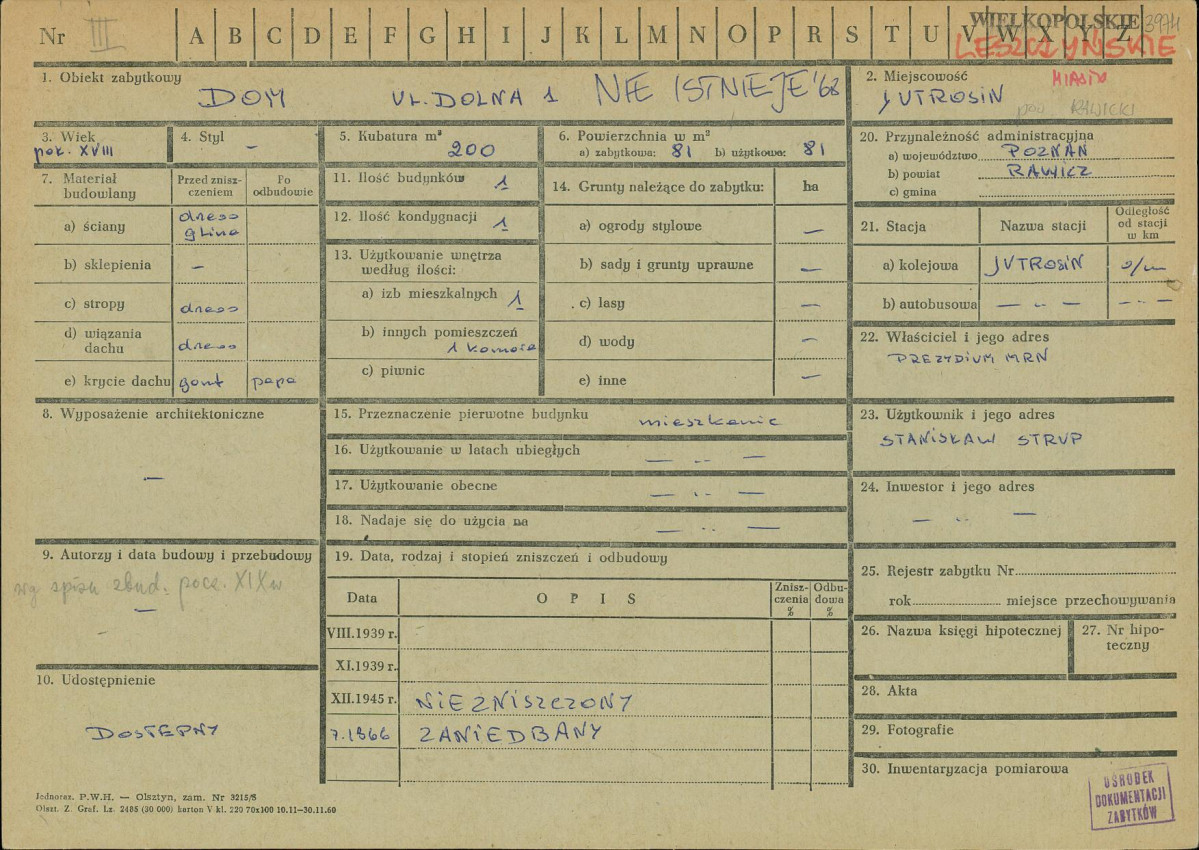 Nr III A B C D E F G H I J K L M N O P R S T U V W X Y Z
WIELKOPOLSKIE 3974
LESZCZYŃSKIE
1. Obiekt zabytkowy
DOM UL. DOLNA 1 NIE ISTNIEJE '68
2. Miejscowość MIASTO
JUTROSIN
pow RAWICKI
3. Wiek
poł. XVIII
4. Styl
—
5. Kubatura m³
200
6. Powierzchnia w m²
a) zabytkowa: 81 b) użytkowa: 81
7. Materiał budowlany
Przed zniszczeniem
Po odbudowie
a) ściany
glina
b) sklepienia —
c) stropy
d) wiązania dachu
e) krycie dachu gont papa
8. Wyposażenie architektoniczne
—
9. Autorzy i data budowy i przebudowy
wg spisu zbud. pocz. XIX w
—
10. Udostępnienie
DOSTĘPNY
11. Ilość budynków 1
12. Ilość kondygnacji 1
13. Użytkowanie wnętrza
według ilości:
a) izb mieszkalnych 1
b) innych pomieszczeń
1 komora
c) piwnic
14. Grunty należące do zabytku: ha
a) ogrody stylowe —
b) sady i grunty uprawne —
c) lasy —
d) wody —
e) inne —
15. Przeznaczenie pierwotne budynku mieszkanie
16. Użytkowanie w latach ubiegłych — .. —
17. Użytkowanie obecne — .. —
18. Nadaje się do użycia na — .. —
19. Data, rodzaj i stopień zniszczeń i odbudowy
Data OPIS Zniszczenia % Odbudowa %
VIII.1939 r.
XI.1939 r.
XII.1945 r. NIEZNISZCZONY
7.1966 ZANIEDBANY
20. Przynależność administracyjna
a) województwo POZNAŃ
b) powiat RAWICZ
c) gmina
21. Stacja Nazwa stacji Odległość od stacji w km
a) kolejowa JUTROSIN
b) autobusowa — .. — — .. —
22. Właściciel i jego adres
PREZYDIUM MRN
23. Użytkownik i jego adres
STANISŁAW STRUP
24. Inwestor i jego adres
— .. —
25. Rejestr zabytku Nr
rok miejsce przechowywania
26. Nazwa księgi hipotecznej
27. Nr hipoteczny
28. Akta
29. Fotografie
30. Inwentaryzacja pomiarowa
OŚRODEK
DOKUMENTACJI
ZABYTKÓW
Jednoraz. P.W.H. — Olsztyn, zam. Nr 3215/S
Olszt. Z. Graf. Lz. 2485 (30 000) karton V kl. 220 70x100 10.11—30.11.60